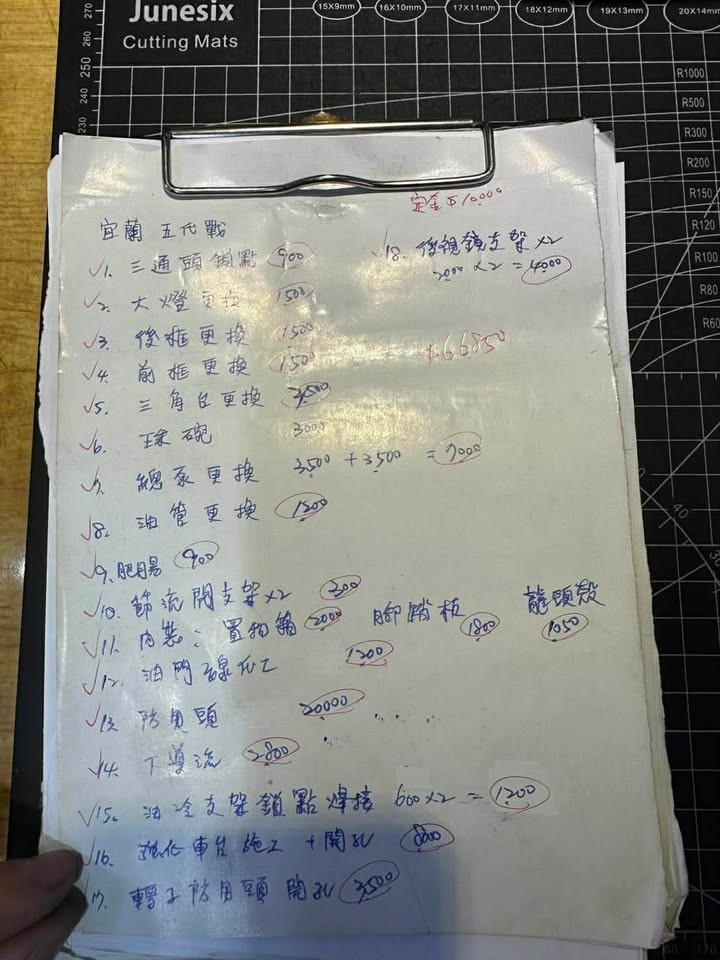 Junesix
Cutting Mats
15X9mm
16X10mm
17X11mm
18X12mm
19X13mm
20X14mm
270
260
250
240
230
R1000
R500
R300
R200
R150
R120
R100
R80
R60
定金 10000
宜蘭 五代戰
1. 三通頭鎖點 900
2. 大燈更換 1500
3. 後框更換 1500
4. 前框更換 1500
5. 三角台更換 3500
6. 珠碗 3000
7. 總泵更換 3500 + 3500 = 7000
8. 油管更換 1200
9. 肥腸 900
10. 節流閥支架×2 300
11. 內裝：置物箱 2000 腳踏板 1800 龍頭殼 1050
12. 油門線加工 1200
13. 防甩頭 20000
14. 下導流 2800
15. 油冷支架鎖點焊接 600×2 = 1200
16. 強化車台施工 + 開孔 8000
17. 轉子防甩頭開孔 3500
18. 後視鏡支架×2
2000 × 2 = 4000
66850